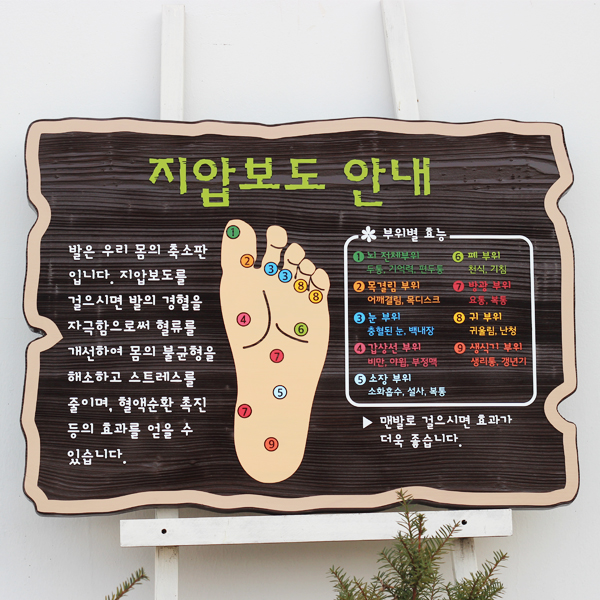 지압보도 안내
발은 우리 몸의 축소판
입니다. 지압보도를
걸으시면 발의 경혈을
자극함으로써 혈류를
개선하여 몸의 불균형을
해소하고 스트레스를
줄이며, 혈액순환 촉진
등의 효과를 얻을 수
있습니다.
1
2
3
3
8
8
4
6
7
5
7
9
부위별 효능
1 뇌 전체부위
두통, 기억력, 편두통
2 목결림 부위
어깨결림, 목디스크
3 눈 부위
충혈된 눈, 백내장
4 갑상선 부위
비만, 야윔, 부정맥
5 소장 부위
소화흡수, 설사, 복통
6 폐 부위
천식, 기침
7 방광 부위
요통, 복통
8 귀 부위
귀울림, 난청
9 생식기 부위
생리통, 갱년기
▶ 맨발로 걸으시면 효과가
더욱 좋습니다.